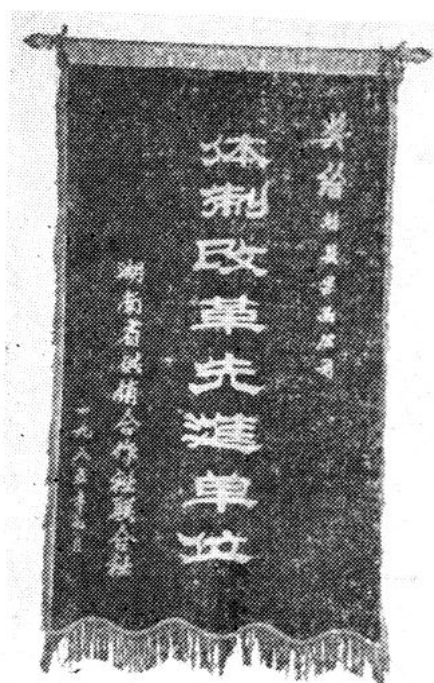 奖给
体制改革先进单位
湖南省供销合作社联合社
一九八五年